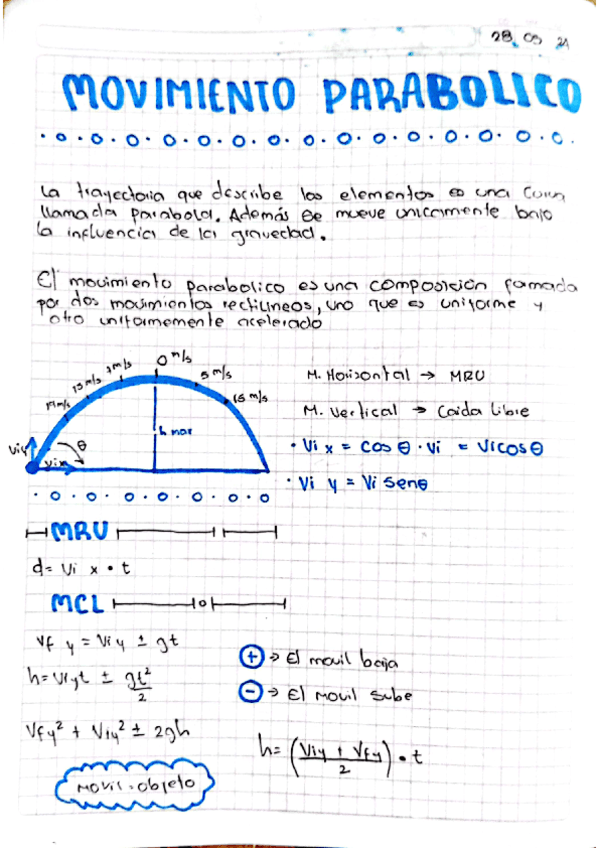 28 05 21
MOVIMIENTO PARABOLICO
La trayectoria que describe los elementos es una curva
llamada parabola. Además se mueve unicamente bajo
la influencia de la gravedad.
El movimiento parabolico es una composición formada
por dos movimientos rectilineos, uno que es uniforme y
otro uniformemente acelerado
0 m/s
m/s
5 m/s
m/s
15 m/s
m/s
h max
Viy
θ
Vix
M. Horizontal → MRU
M. Vertical → Caida Libre
• Vi x = cos θ · Vi = Vi cos θ
• Vi y = Vi sen θ
MRU
d = Vi x • t
MCL
Vf y = Vi y ± gt
h = Viyt ± gt²/2
Vfy² + Viy² ± 2gh
+ → El movil baja
- → El movil sube
h = (Viy + Vfy / 2) • t
Movil = objeto